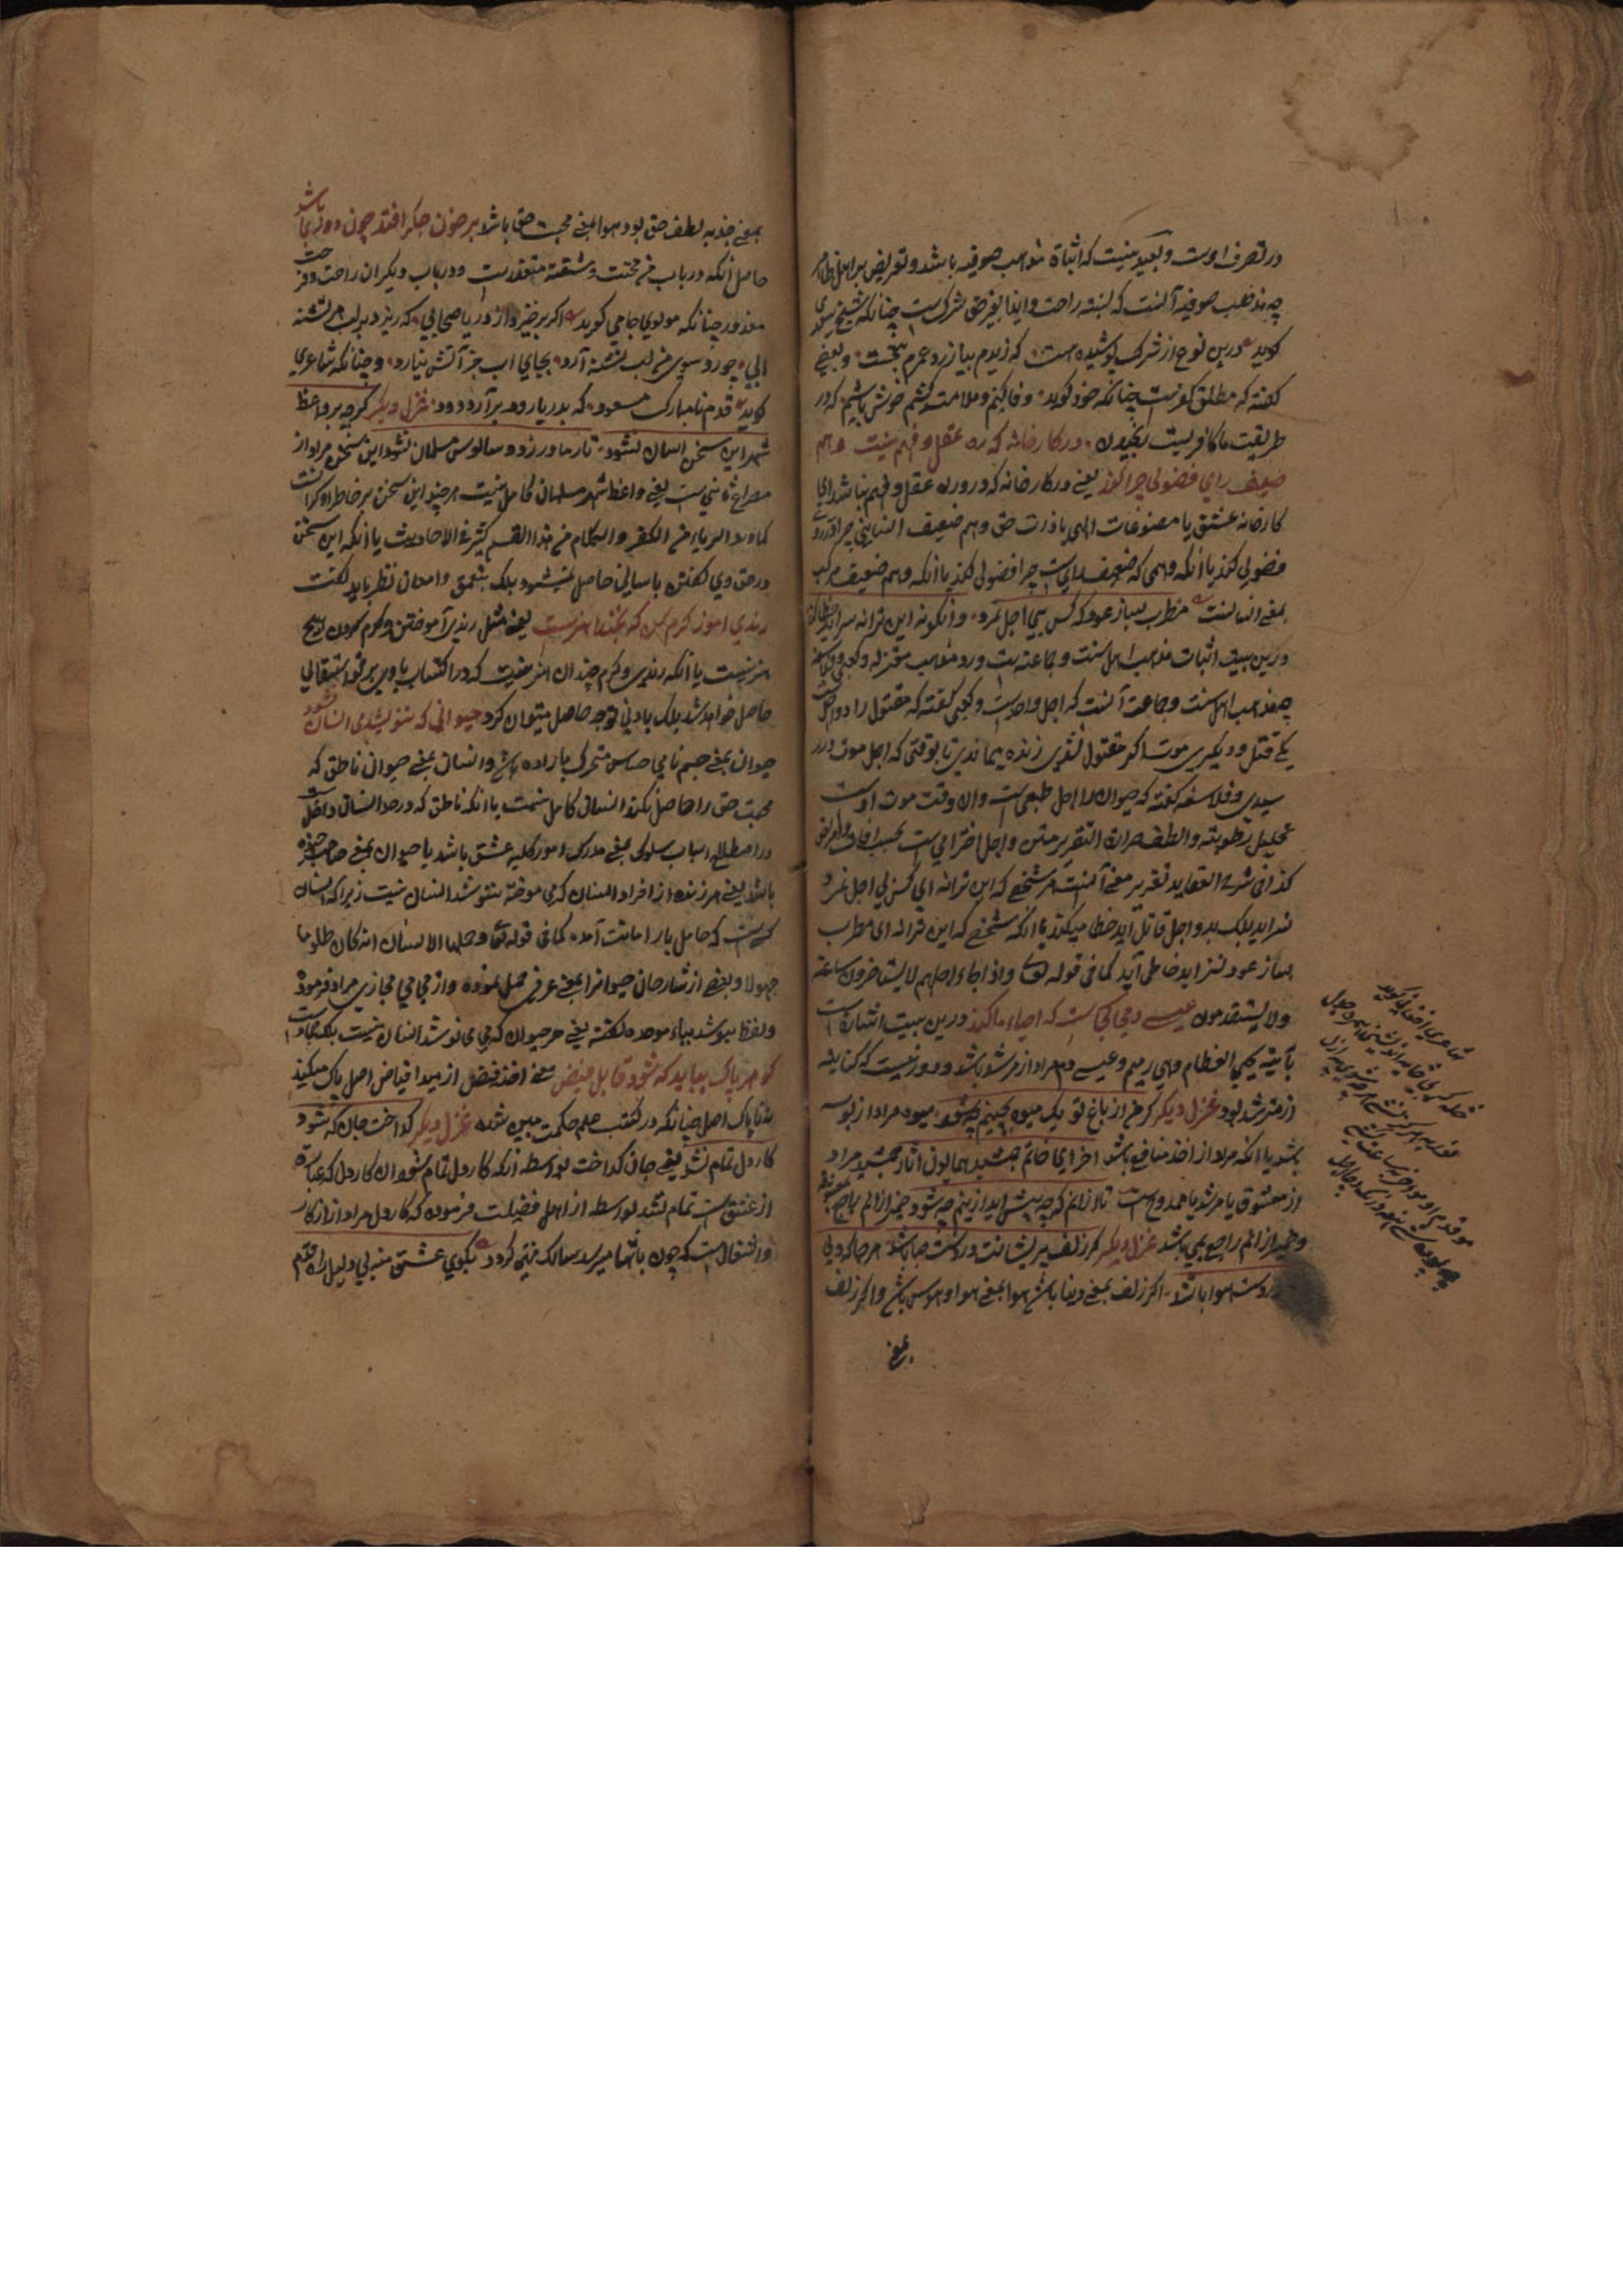 در تصرف اوست و بعید نیست که اثبات مذاهب صوفیه باشد و تعریض بر اهل ظاهر
چه مذهب صوفیه آنست که نسبت راحت و ایذا بغیر حق شرک است چنانکه شیخ سعدی
کوید درین نوع از شرک پوشیده هست که زیدم بیازرد و عمرم بخست و بعضی
کفته که مطلق کفرست چنانکه خود کوید وفا کنیم و ملامت کشیم و خوش باشیم که در
طریقت ما کافریست رنجیدن در کارخانه که ره عقل و فهم نیست وهم
ضعیف رای فضولی چرا کند یعنی در کارخانه که درو ره عقل و فهم نباشد ای
کارخانه عشق یا مصنوعات الهی یا ذات حق وهم ضعیف انسانی چرا
فضولی کند یا آنکه وهمی که ضعیف رایست چرا فضولی کند یا آنکه وهم ضعیف مرکب
بمعنی انسانست مطرب بساز عود که کس بی اجل نمرد و انکو نه این ترانه سراید خطا کند
درین بیت اثبات مذاهب اهل سنت و جماعت است و رد مذاهب معتزله و کعبی و فلاسفه
چه مذهب اهل سنت و جماعت آنست که اجل واحد است و کعبی کفته که مقتول را دو اجل است
یکی قتل و دیکری موت اکر مقتول نشدی زنده بماندی تا بوقتی که اجل موت در
رسیدی و فلاسفه کفته که حیوان را اجل طبعی است وان وقت موت اوست
بتحلیل رطوبته و انطفاء حرارت الغریزیتین و اجل اخترامی است بحسب آفات و امراض
کذا فی شرح العقاید تقریر معنی آنست هر شخصی که این ترانه ای کس بی اجل نمرد
نسراید بلک بدو اجل قائل آید خطا میکند یا آنکه شخصی که این ترانه ای مطرب
بساز عود نسراید خاطی آید کما فی قوله تعالی و اذا جاء اجلهم لا یستاخرون ساعة
ولا یستقدمون عیسی دمی کجاست که احیاء ما کند درین بیت اشارتست
بآیت یحیی العظام وهی رمیم و عیسی دم مراد از مرشد باشد و دور نیست که کنایه
از مرشد بود غزل دیکر کر من از باغ تو یک میوه بچینم چه شود میوه مراد از بوسه
باشد یا آنکه مراد از اخذ منافع باشد آخر ای خاتم جمشید همایون آثار جمشید مراد
از معشوق یا مرشد یا ممدوح است تا ازانم که چه پیش آید ازینم چه شود ضمیر ازانم راجع بمعشوقه
و ضمیر ازینم راجع بمی باشد غزل دیکر کر زلف پریشانت در دست صبا باشد هر جا که دلی
در دست هوا باشد اکر زلف بمعنی دنیا باشد هوا بمعنی هوا و هوس باشد و اکر زلف
بمعنی
بمعنی جذبه لطف حق بود هوا بمعنی محبت حق باشد بر خون جکر افتد چون دور بما باشد
حاصل آنکه در باب من محنت و مشقت متعددست و در باب دیکران راحت و فرحت
معذور چنانکه مولوی جامی کوید اکر برخیزد از دریا سحابی که ریزد بر لب هر تشنه
آبی چو رو سوی من لب تشنه آرد بجای آب جز آتش نبارد و چنانکه شاعری
کوید قدم نامبارک مسعود که بدریا رود برآرد دود غزل دیکر کرچه بر واعظ
شهر این سخن آسان نشود تا ریا ورزد و سالوس مسلمان نشود این سخن مراد از
مصراع ثانی است یعنی واعظ شهر مسلمان کامل نیست هر چند این سخن بر خاطر او کرانست
کما ورد الریاء من الکفر والکلام من هذا القسم کثیر فی الاحادیث یا آنکه این سخن
در حق وی کفتن باسانی حاصل نمیشود بلک بتعمق و امعان نظر باید کفت
رندی آموز و کرم کن که نه چندان هنرست یعنی مثل رندی آموختن و کرم کردن هیچ
هنر نیست یا آنکه رندی و کرم چندان هنر نیست که در اکتساب باوی برنج و اشتغالی
حاصل خواهد شد بلک بادنی توجه حاصل میتوان کرد حیوانی که ننوشد می انسان نشود
حیوان بمعنی جسم نامی حساس متحرک بارادت باشد و انسان بمعنی حیوان ناطق که
محبت حق را حاصل نکرد انسان کامل نیست یا آنکه ناطق که در حد انسان داخلست
در اصطلاح ارباب سلوک بمعنی مدرک امور کلیه عشق باشد یا حیوان بمعنی صاحب حیات
باشد یعنی هر زنده از افراد انسان که می معرفت ننوشد انسان نیست زیرا که انسان
کسی است که حامل بار امانت آمده کما فی قوله تعالی وحملها الانسان انه کان ظلوما
جهولا و بعضی از شارحان حیوان را بمعنی عرفی حمل نموده و از می می مجازی مراد فرموده
ولفظ بنوشد بباء موحده کفته یعنی هر حیوان که می بنوشد انسان نیست بلکه جمادست
کوهر پاک بباید که شود قابل فیض یعنی اخذ فیض از مبدأ فیاض اصل پاک میکند
نه ناپاک اصل چنانکه در کتب علم حکمت مبین شده غزل دیکر کداخت جان که شود
کار دل تمام و نشد یعنی جان کداخت بواسطه آنکه کار دل تمام شود آن کار دل که عبارت
از عشق است تمام نشد بواسطه از اهل فضیلت فرموده که کار دل مراد از اذکار
و اشتغال است که چون باتمام میرسد سالک منتهی کردد بکوی عشق منه بی دلیل راه قدم